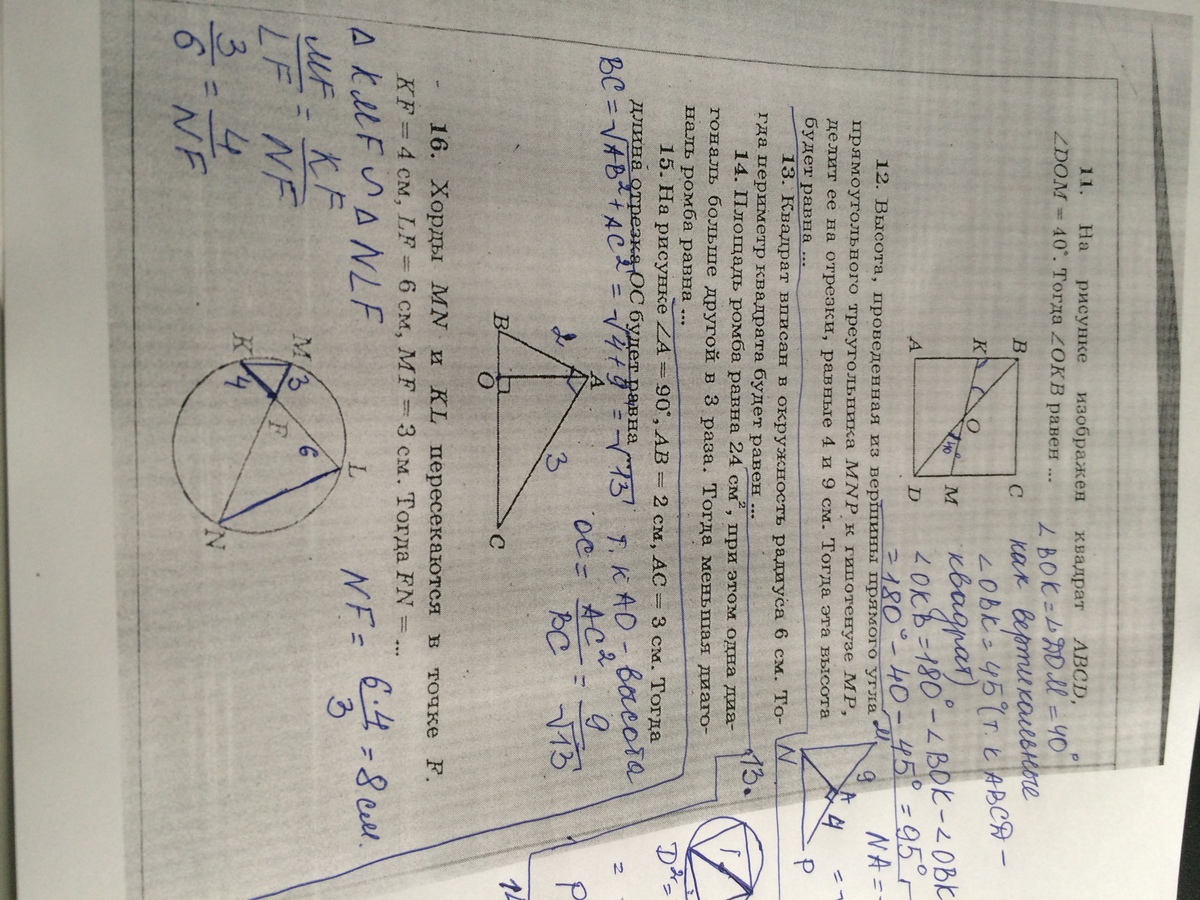 11. На рисунке изображен квадрат ABCD,
∠DOM = 40°. Тогда ∠OKB равен ...
B C
K O
40°
M
A D
∠BOK = ∠DOM = 40°
как вертикальные
∠OBK = 45° (т.к ABCD –
квадрат)
∠OKB = 180° – ∠BOK – ∠OBK
= 180° – 40 – 45° = 95°
12. Высота, проведенная из вершины прямого угла
прямоугольного треугольника MNP к гипотенузе MP,
делит ее на отрезки, равные 4 и 9 см. Тогда эта высота
будет равна ...
M 9 A 4 P N
NA =
13. Квадрат вписан в окружность радиуса 6 см. То-
гда периметр квадрата будет равен ...
13.
D² =
14. Площадь ромба равна 24 см², при этом одна диа-
гональ больше другой в 3 раза. Тогда меньшая диаго-
наль ромба равна ...
15. На рисунке ∠A = 90°, AB = 2 см, AC = 3 см. Тогда
длина отрезка OC будет равна
BC = √AB² + AC² = √4 + 9 = √13 т.к AO – высота
A
2 3
B O C
OC = AC²/BC = 9/√13
16. Хорды MN и KL пересекаются в точке F.
KF = 4 см, LF = 6 см, MF = 3 см. Тогда FN = ...
△ KMF ∽ △ NLF
MF/LF = KF/NF
3/6 = 4/NF
M L
3 6
F
4
K N
NF = 6·4/3 = 8 см.